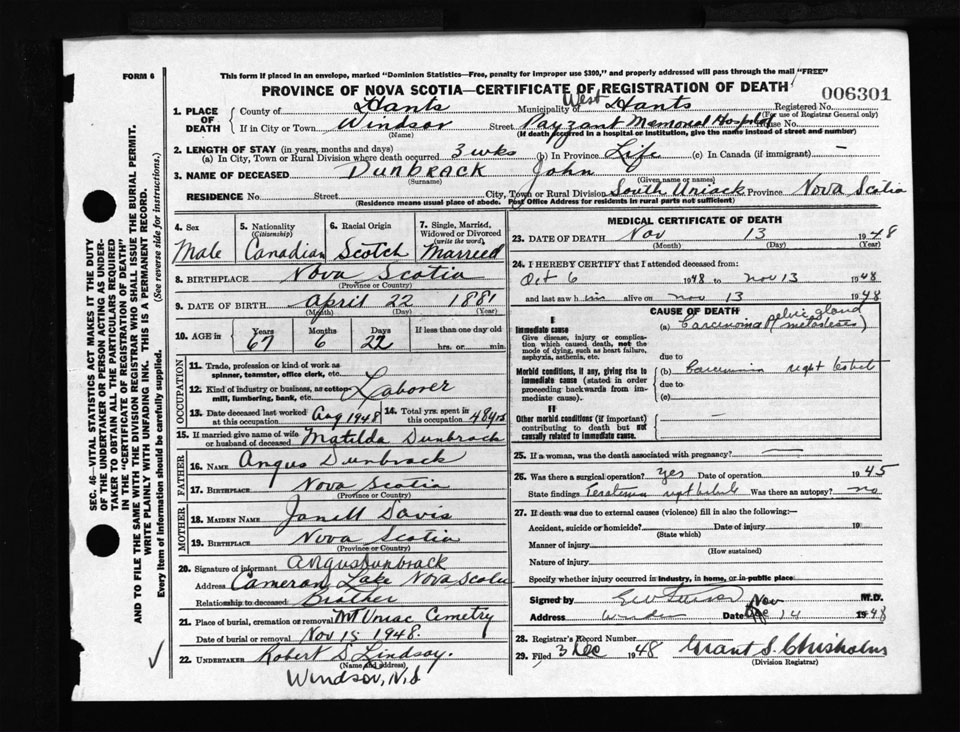 FORM 6
This form if placed in an envelope, marked "Dominion Statistics—Free, penalty for improper use $300," and properly addressed will pass through the mail "FREE"
PROVINCE OF NOVA SCOTIA—CERTIFICATE OF REGISTRATION OF DEATH
006301
1. PLACE OF DEATH
County of Hants Municipality of West Hants Registered No.
(For use of Registrar General only)
If in City or Town Windsor Street Payzant Memorial Hospital House No.
(Name) (If death occurred in a hospital or institution, give the name instead of street and number)
2. LENGTH OF STAY (in years, months and days)
(a) In City, Town or Rural Division where death occurred 3 wks (b) In Province Life (c) In Canada (if immigrant) —
3. NAME OF DECEASED DUNBRACK John
(Surname) (Given name or names)
RESIDENCE No. Street City, Town or Rural Division South Uniack Province Nova Scotia
(Residence means usual place of abode. Post Office Address for residents in rural parts not sufficient)
4. Sex Male
5. Nationality (Citizenship) Canadian
6. Racial Origin Scotch
7. Single, Married, Widowed or Divorced (write the word) Married
8. BIRTHPLACE Nova Scotia
(Province or Country)
9. DATE OF BIRTH April 22 1881
(Month) (Day) (Year)
10. AGE in Years 67 Months 6 Days 22 If less than one day old hrs. or min.
OCCUPATION
11. Trade, profession or kind of work as spinner, teamster, office clerk, etc.
12. Kind of industry or business, as cotton-mill, lumbering, bank, etc. Laborer
13. Date deceased last worked at this occupation Aug 1948
14. Total yrs. spent in this occupation 48 yrs
15. If married give name of wife or husband of deceased Matilda Dunbrack
FATHER
16. NAME Angus Dunbrack
17. BIRTHPLACE Nova Scotia
(Province or Country)
MOTHER
18. MAIDEN NAME Janett Davis
19. BIRTHPLACE Nova Scotia
(Province or Country)
20. Signature of informant Angus Dunbrack
Address Cameron Lake Nova Scotia
Relationship to deceased Brother
21. Place of burial, cremation or removal Mt Uniac Cemetry
Date of burial or removal Nov 15 1948.
22. UNDERTAKER Robert D. Lindsay.
(Name and address)
Windsor, N.S
MEDICAL CERTIFICATE OF DEATH
23. DATE OF DEATH Nov 13 1948
(Month) (Day) (Year)
24. I HEREBY CERTIFY that I attended deceased from:
Oct 6 1948 to Nov 13 1948
and last saw him alive on Nov 13 1948
CAUSE OF DEATH
I
Immediate cause
Give disease, injury or complication which caused death, not the mode of dying, such as heart failure, asphyxia, asthenia, etc.
(a) Carcinoma pelvic gland (metastases)
due to
Morbid conditions, if any, giving rise to immediate cause (stated in order proceeding backwards from immediate cause).
(b) Carcinoma right testicle
due to
(c)
II
Other morbid conditions (if important) contributing to death but not causally related to immediate cause. —
25. If a woman, was the death associated with pregnancy? —
26. Was there a surgical operation? Yes Date of operation 1945
State findings right Was there an autopsy? no
27. If death was due to external causes (violence) fill in also the following:—
Accident, suicide or homicide? Date of injury 19
(State which)
Manner of injury
(How sustained)
Nature of injury
Specify whether injury occurred in industry, in home, or in public place
Signed by M.D.
Address Date Nov 14 1948
28. Registrar's Record Number
29. Filed 3 Dec 1948 Grant S. Chisholm
(Division Registrar)
SEC. 46—VITAL STATISTICS ACT MAKES IT THE DUTY
OF THE UNDERTAKER OR PERSON ACTING AS UNDER-
TAKER TO OBTAIN ALL THE PARTICULARS REQUIRED
IN THE "CERTIFICATE OF REGISTRATION OF DEATH"
AND TO FILE THE SAME WITH THE DIVISION REGISTRAR WHO SHALL ISSUE THE BURIAL PERMIT.
WRITE PLAINLY WITH UNFADING INK. THIS IS A PERMANENT RECORD.
Every item of information should be carefully supplied. (See reverse side for instructions.)